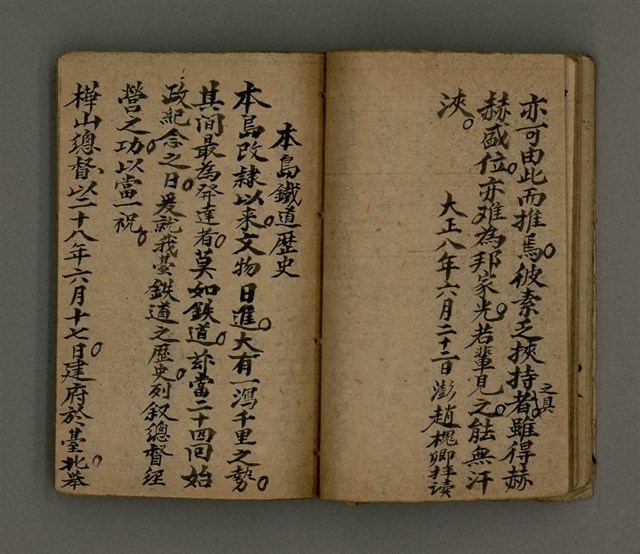 亦可由此而推焉。彼素乏挾持之具者。雖得赫
赫盛位。亦难為邦家光。若輩見之。能無汗
浹。
大正八年六月二十二日澎趙槐卿拜讀
本島鐵道歷史
本島改隸以來。文物日進。大有一瀉千里之勢。
其间最為発達者。莫如鉄道。茲當二十四回始
政紀念之日。爰就我臺鉄道之歷史。列叙總督経
營之功。以當一祝。
樺山總督。以二十八年六月十七日。建府於臺北。举